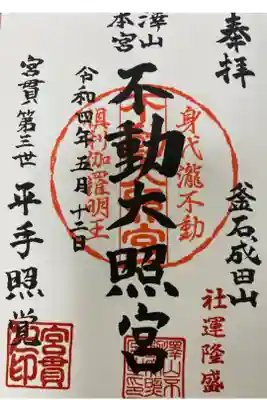 奉拝
釜石成田山
社運隆盛
身代瀧不動
不動大照宮
倶利伽羅明王
澤山
本宮
令和四年五月十二日
宮貫第三世 平手照覚
宮貫
之印